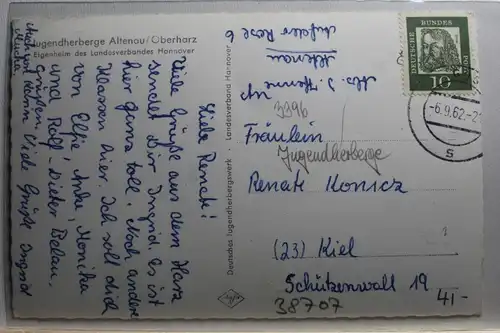 Jugendherberge Altenau/Oberharz
Eigenheim des Landesverbandes Hannover
Liebe Renate!
Viele Grüße aus dem Harz
sendet Dir Ingrid. Es ist
hier ganz toll. Noch andere
Klassen hier. Ich soll dich
von Elfie, Anke, Monika
und Rolf-Dieter Belau
Grüßen. Viele Grüße Ingrid
Deutsches Jugendherbergswerk
Landesverband Hannover
Agfa
Altenau
Auf der Rose 6
3396
An
Fräulein
Jugendherberge
Renate Konicz
(23) Kiel
Schützenwall 19
38707
41,-
DEUTSCHE BUNDESPOST
10
-6.9.62-2